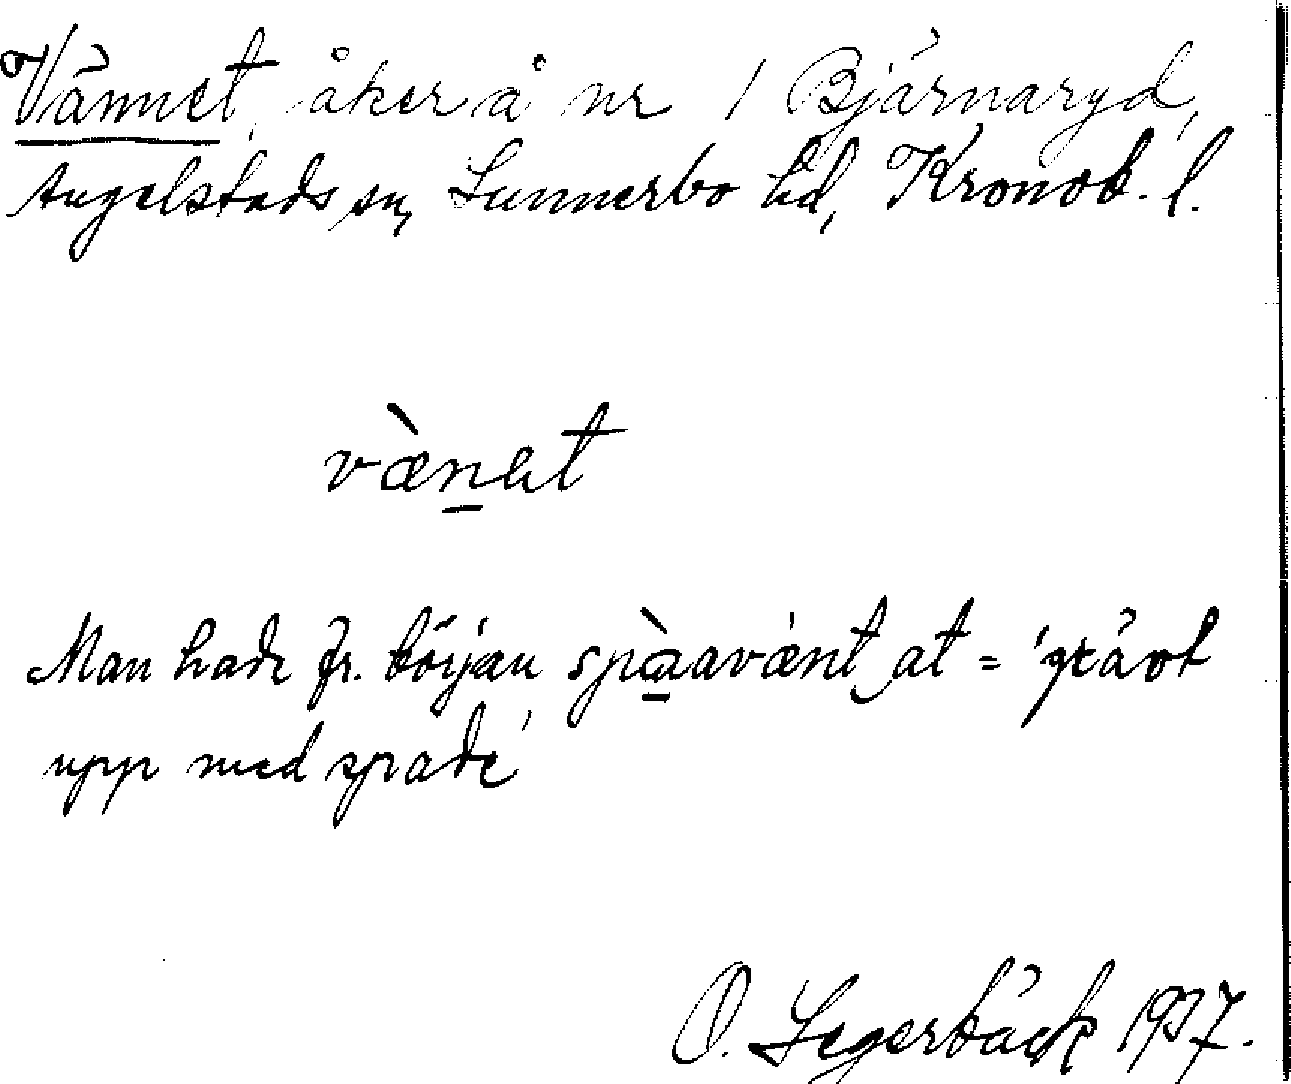 Vännet, åker å nr 1 Bjärnaryd,
Angelstads sn, Sunnerbo hd, Kronob. l.
væ̀n̲et
Man hade fr. början spà̲avænt at = 'grävt
upp med spade'
O. Segerbäck 1927.